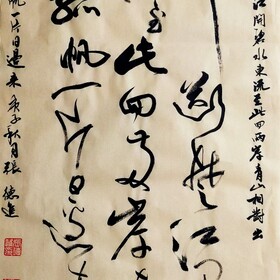 江開碧水東流至此回兩岸青山相對出
斷楚江
至此回兩岸
孤帆一片日邊
帆一片日邊来 庚子秋月張德進